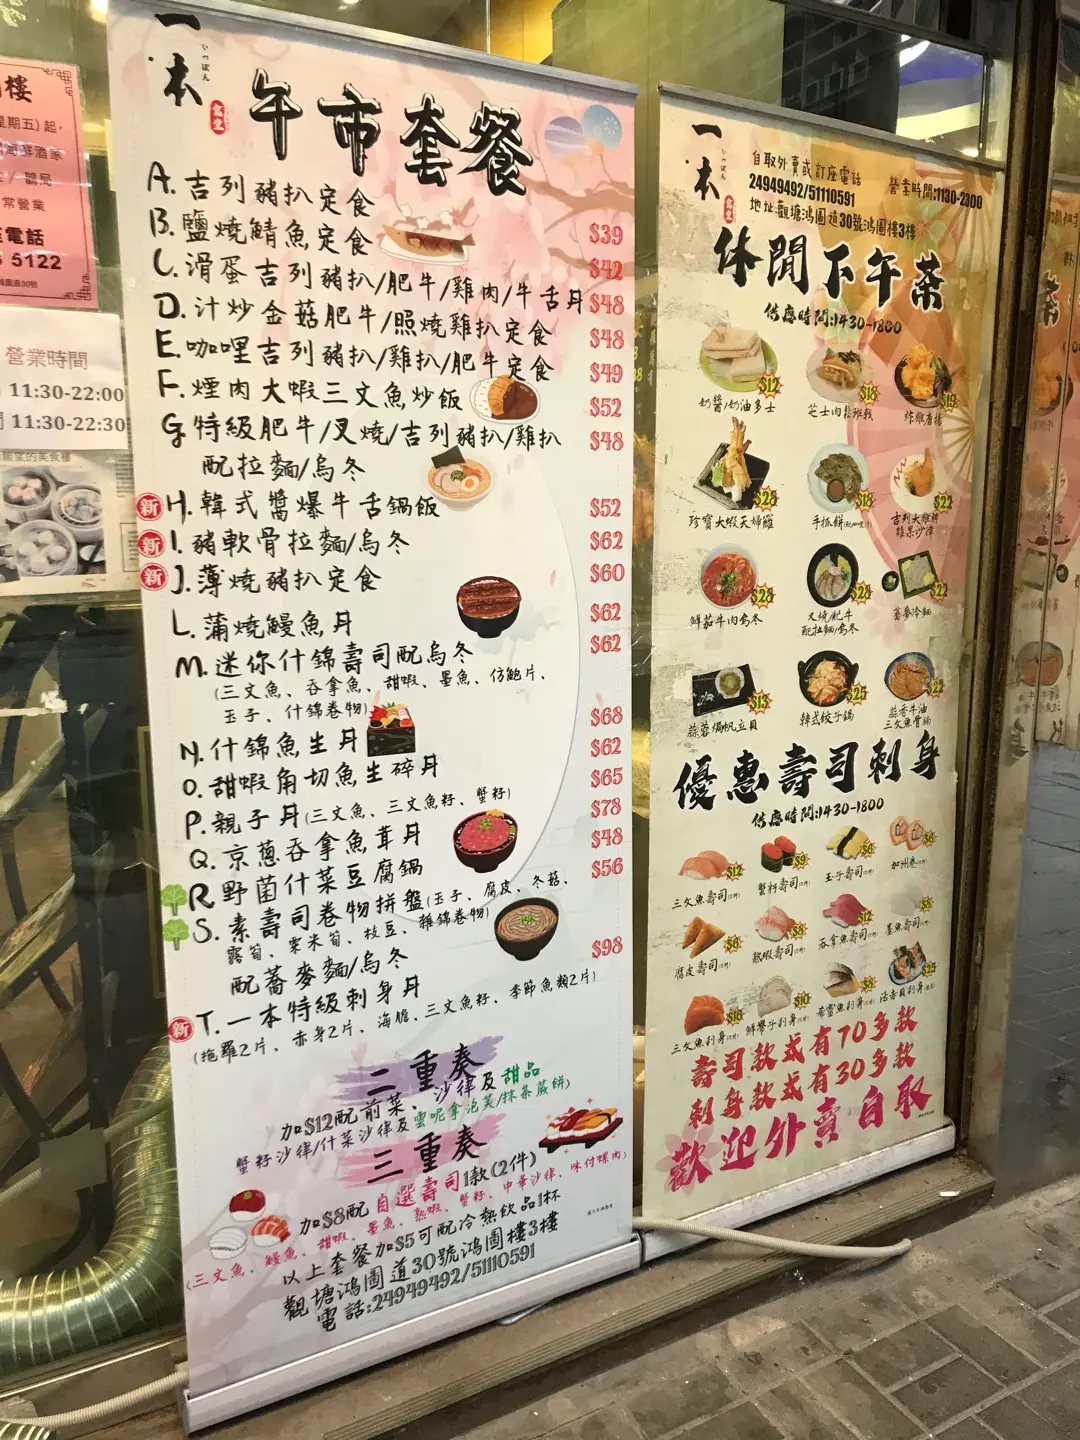 樓
星期五)起，
海鮮酒家
常營業
電話
5122
營業時間
11:30-22:00
11:30-22:30
一本
いっぽん
午市套餐
A. 吉列豬扒定食 $39
B. 鹽燒鯖魚定食 $42
C. 滑蛋吉列豬扒/肥牛/雞肉/牛舌丼 $48
D. 汁炒金菇肥牛/照燒雞扒定食 $48
E. 咖哩吉列豬扒/雞扒/肥牛定食 $49
F. 煙肉大蝦三文魚炒飯 $52
G 特級肥牛/叉燒/吉列豬扒/雞扒 $48
配拉麵/烏冬
新 H. 韓式醬爆牛舌鍋飯 $52
新 I. 豬軟骨拉麵/烏冬 $62
新 J. 薄燒豬扒定食 $60
L. 蒲燒鰻魚丼 $62
M. 迷你什錦壽司配烏冬 $62
(三文魚、吞拿魚、甜蝦、墨魚、仿鮑片、
玉子、什錦卷物)
N. 什錦魚生丼 $68
O. 甜蝦角切魚生碎丼 $62
P. 親子丼(三文魚、三文魚籽、蟹籽) $65
Q. 京蔥吞拿魚茸丼 $78
R 野菌什菜豆腐鍋 $48
S. 素壽司卷物拼盤(玉子、腐皮、冬菇、 $56
露筍、粟米筍、枝豆、雜錦卷物)
配蕎麥麵/烏冬
新 T. 一本特級刺身丼 $98
(拖羅2片、赤身2片、海膽、三文魚籽、季節魚類2片)
二重奏
加$12配前菜、沙律及甜品
蟹籽沙律/什菜沙律及雲呢拿泡芙/抹茶蕨餅)
三重奏
加$8配自選壽司1款(2件)
(三文魚、鰻魚、甜蝦、墨魚、熱蝦、蟹籽、中華沙律、味付螺肉)
以上套餐加$5可配冷熱飲品1杯
觀塘鴻圖道30號鴻圖樓3樓
電話:24949492/51110591
一本
いっぽん
自取外賣或訂座電話
24949492/51110591
營業時間:1130-2300
地址:觀塘鴻圖道30號鴻圖樓3樓
休閒下午茶
供應時間:1430-1800
$12 $18 $19
奶醬/奶油多士
$28 $18 $22
珍寶大蝦天婦羅 手抓餅
$28 $28 $22
鮮茄牛肉烏冬 叉燒/肥牛
配拉麵/烏冬 蕎麥冷麵
$13 $25 $22
蒜蓉焗帆立貝 韓式餃子鍋 蒜香牛油
三文魚骨腩
優惠壽司刺身
供應時間:1430-1800
$12 $9 $6 $6
三文魚壽司 蟹籽壽司 玉子壽司 加州卷
$6 $8 $12 $8
腐皮壽司 熱蝦壽司 吞拿魚壽司 墨魚壽司
$16 $10 $8 $25
三文魚刺身 鮮帶子刺身 希靈魚刺身 活赤貝刺身
壽司款式有70多款
刺身款式有30多款
歡迎外賣自取